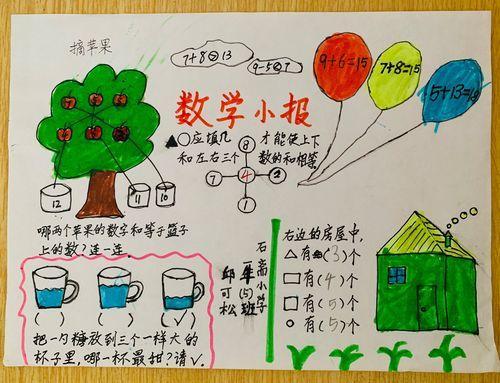 摘苹果
7+8>13
9-5<7
9+6=15
7+8=15
5+13=18
数学小报
▲○应填几
才能使上下
和左右三个
数的和相等。
8
7 4 2
1
12 11 10
哪两个苹果的数字和等于篮子
上的数?连一连。
( ) ( ) (✓)
把一勺糖放到三个一样大的
杯子里,哪一杯最甜?请✓.
石高小学
一年(5)班
邱可松
右边的房屋中,
△有(3)个
▱有(4)个
□有(5)个
○有(5)个